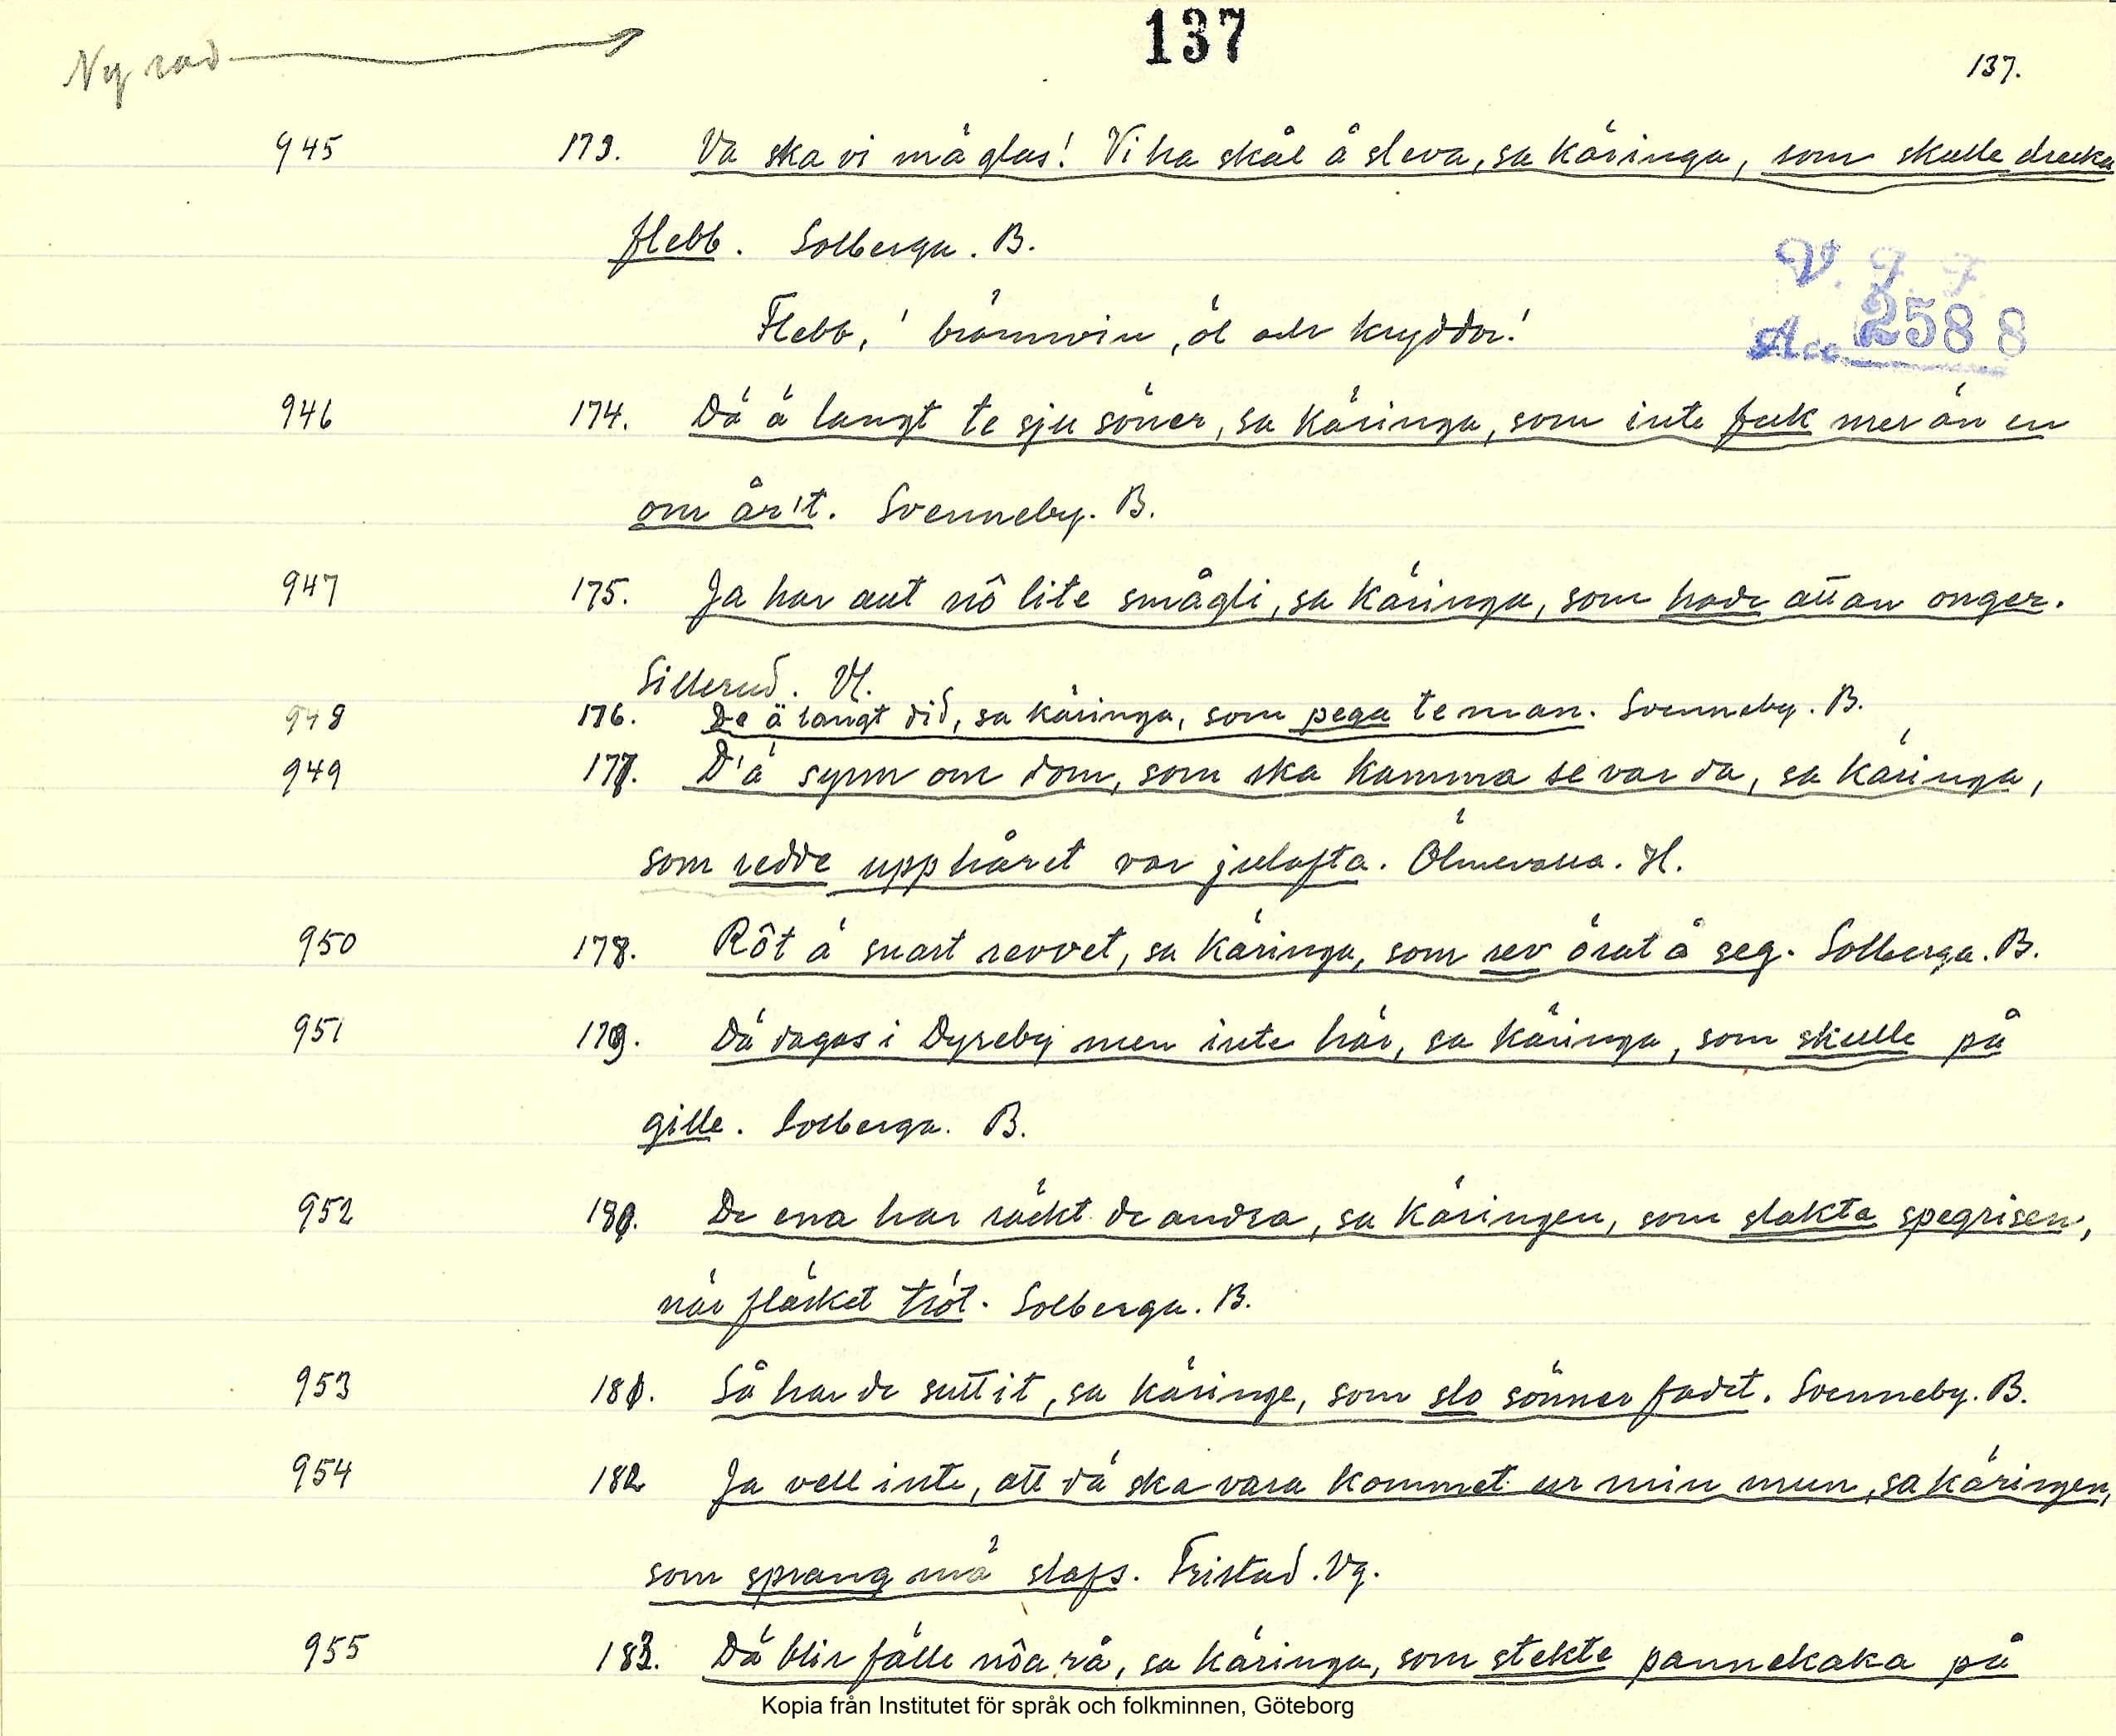 137
Ny rad
137.
945 173. Va ska vi mä glas! Vi ha skål å sleva, sa käringa, som skulle drecka
flebb. Solberga. B.
Flebb, 'brännvin, öl och kryddor.'
V. F. F.
Acc. 2588
946 174. Dä ä langt te sju söner, sa käringa, som inte fick mer än en
om år't. Svenneby. B.
947 175. Ja har aut nô lite smågli, sa käringa, som hade attan onger.
Sillerud. Vl.
948 176. De ä langt did, sa käringa, som pega te man. Svenneby. B.
949 177. D'ä synn om dom, som ska kamma se var da, sa käringa,
som redde upp håret var julafta. Ölmevalla. H.
950 178. Rôt ä snart revvet, sa käringa, som rev örat å seg. Solberga. B.
951 179. Dä dagas i Dyreby men inte här, sa käringa, som skulle på
gille. Solberga. B.
952 180. De ena har räckt de andra, sa käringen, som slakta spegrisen,
när fläsket tröt. Solberga. B.
953 181. Så har de suttit, sa käringe, som slo sönner fadet. Svenneby. B.
954 182 Ja vell inte, att dä ska vara kommet ur min mun, sa käringen,
som sprang mä slafs. Fristad. Vg.
955 183. Dä blir fälle nôa rå, sa käringa, som stekte pannekaka på
Kopia från Institutet för språk och folkminnen, Göteborg